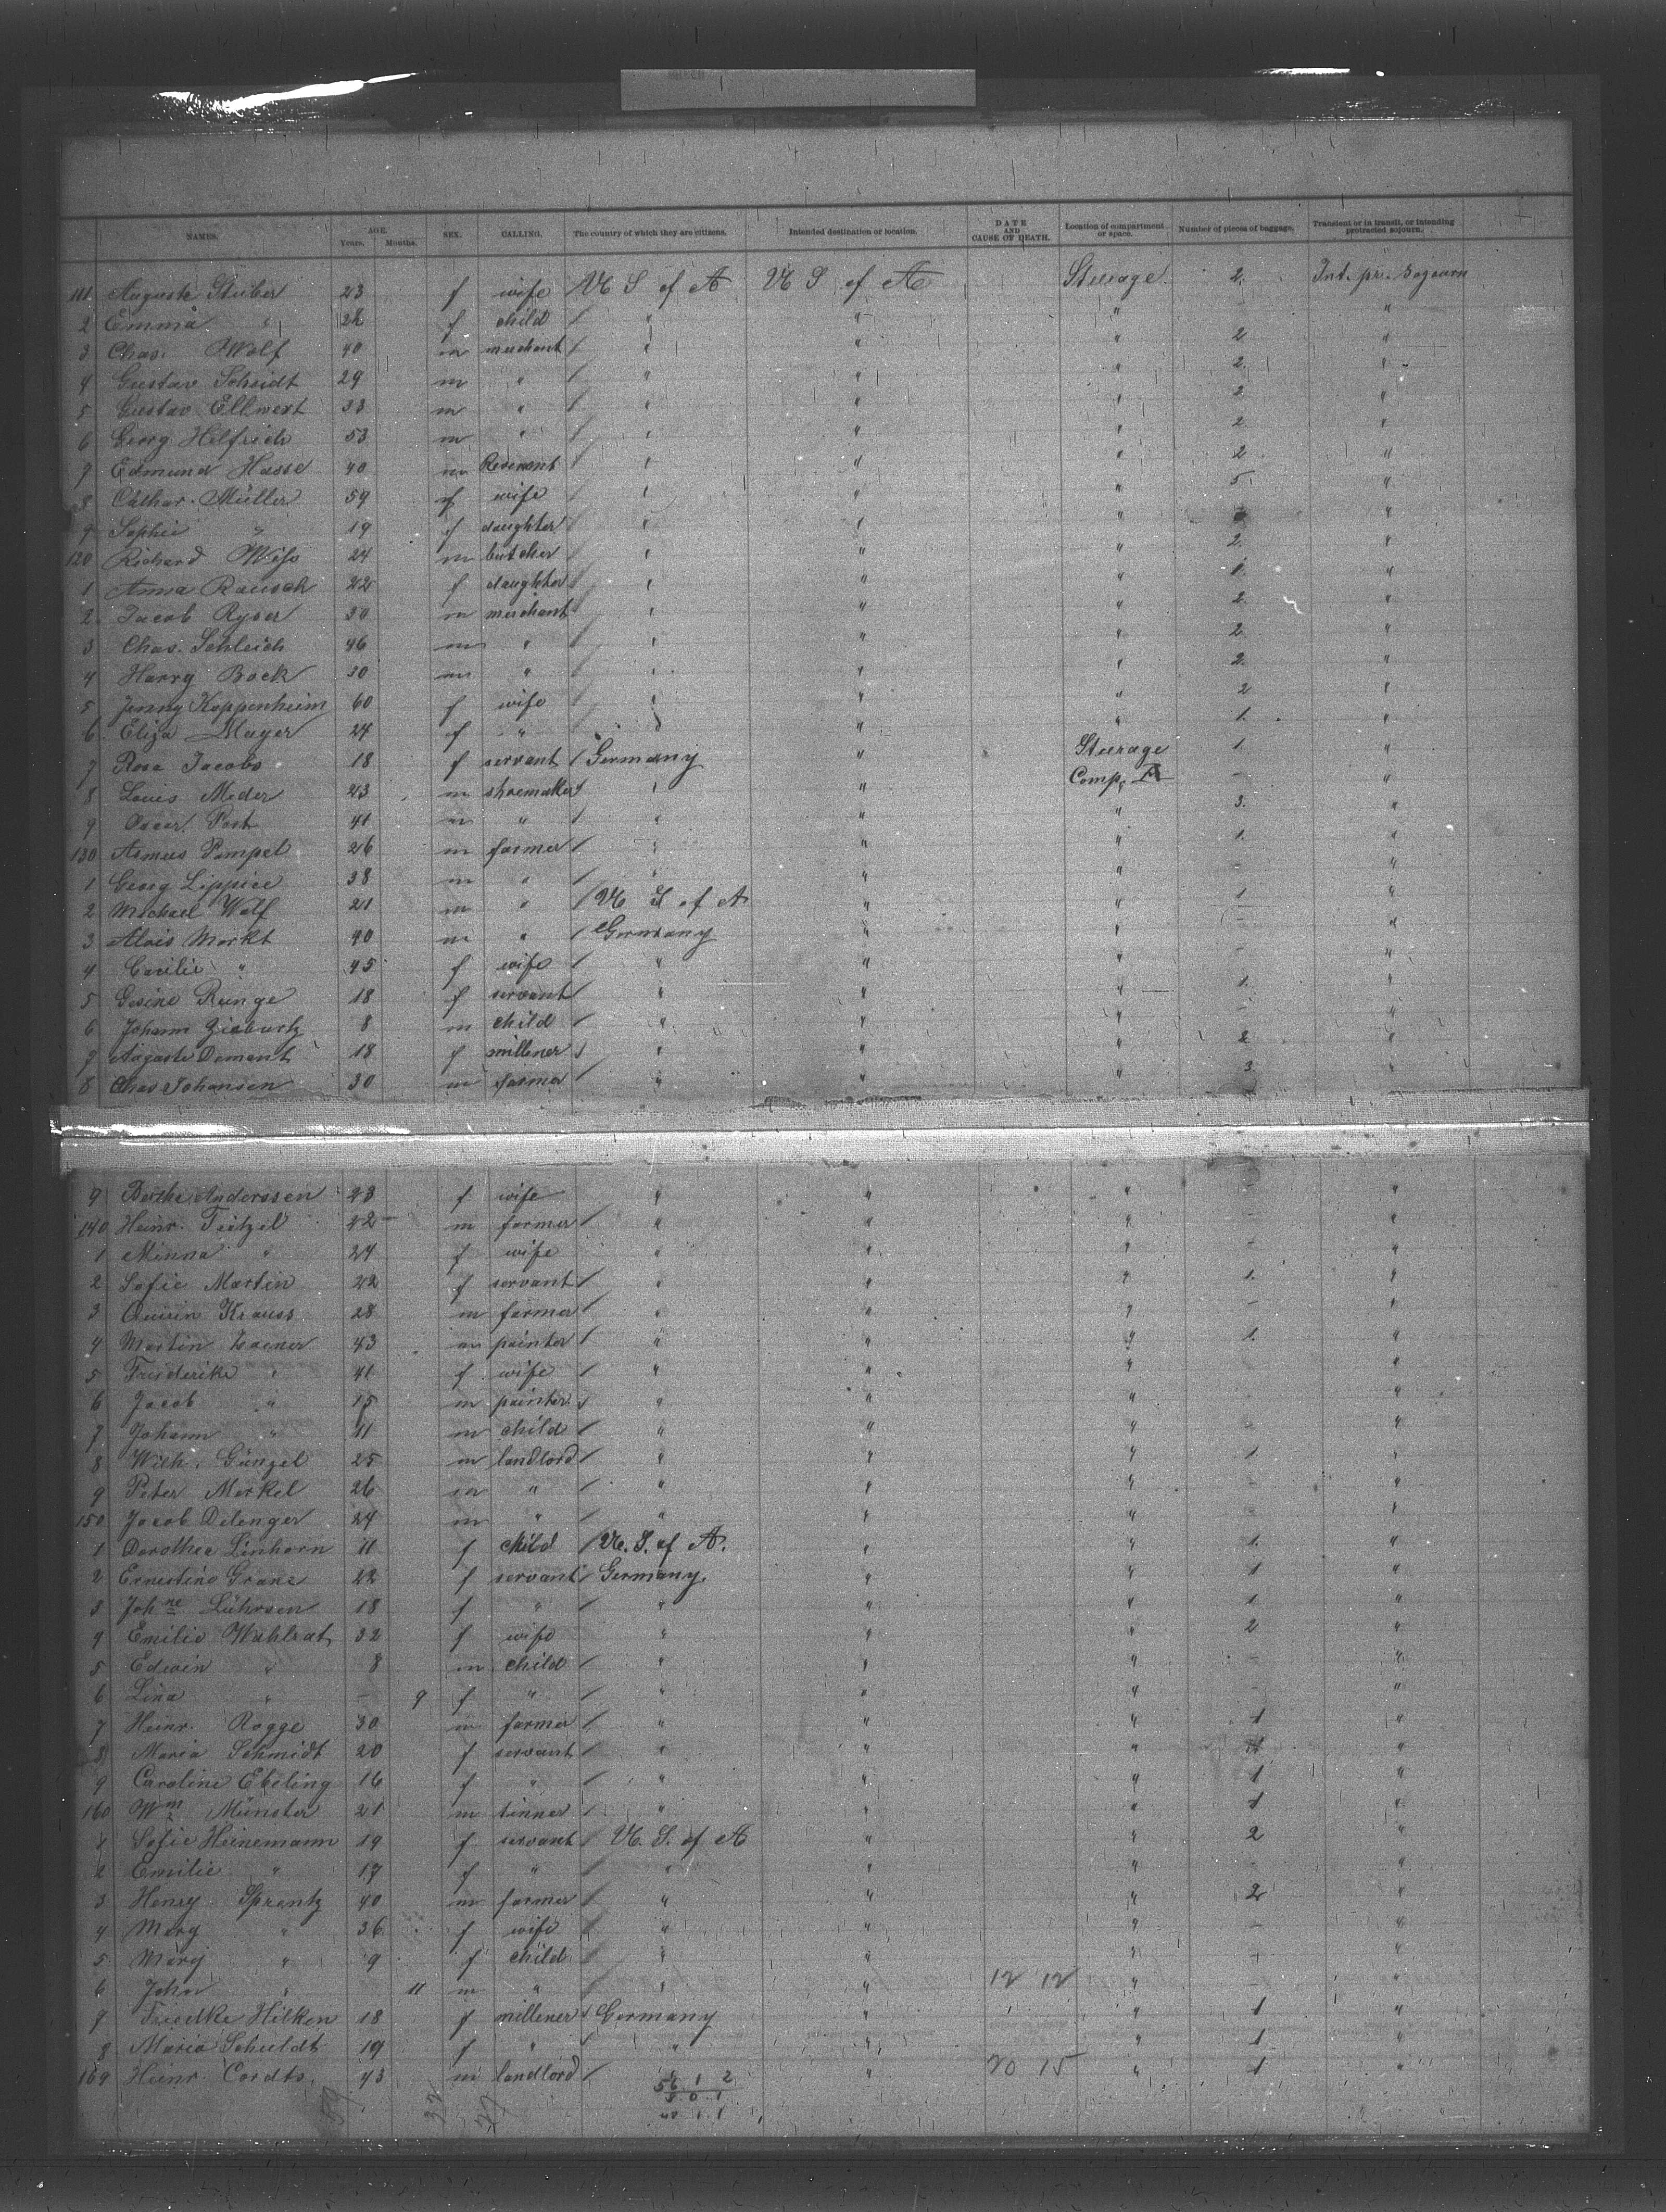 NAMES. AGE. Years. Months. SEX. CALLING. The country of which they are citizens. Intended destination or location. DATE AND CAUSE OF DEATH. Location of compartment or space. Number of pieces of baggage. Transient or in transit, or intending protracted sojourn.
111 Auguste Stuber 23 f wife U S of A U S of A Steerage 2. Int. pr. Sogourn
2 Emma " f child / " " " "
3 Chas. Wolf 40 m merchant / " " " 2 "
4 Gustav Schsidt 29 m " / " " " 2. "
5 Gustav Ellwert 33 m " / " " " 2 "
6 Georg Helfrich 53 m " / " " " 2 "
7 Edmund Hasse 40 m Reverent / " " " 2 "
8 Cathar. Müller 59 f wife / " " " 5. "
9 Sophie " 19 f daughter / " " " "
120 Richard Weiss 24 m butcher / " " " 2. "
1 Anna Rausch 22 f daughter / " " " 1. "
2 Jacob Ryser 30 m merchant / " " " 2. "
3 Chas. Schleich 46 m " / " " " 2 "
4 Harry Bock 30 m " / " " " 2. "
5 Jenny Koppenheim 60 f wife / " " " 2 "
6 Eliza Mayer 24 f " / " " " 1. "
7 Rosa Jacobs 18 f servant / Germany " Steerage 1. "
8 Louis Meder 23 m shoemaker / " " Comp. A - "
9 Oscar Post 41 m " / " " " 3. "
130 Asmus Pampel 26 m farmer / " " " 1. "
1 Georg Lippice 38 m " / " " " - "
2 Michael Wolf 21 m " / U S of A " " 1 "
3 Alois Markt 40 m " / Germany " " - "
4 Cacilie " 45 f wife / " " " - "
5 Gesine Runge 18 f servant / " " " 1. "
6 Johann Zieburtz 8 m child / " " " - "
7 Auguste Demant 18 f millener / " " " 2 "
8 Chas Johansen 30 m farmer / " " " 3. "
9 Berthe Anderssen 23 f wife " " " - "
140 Heinr. Tietzel 42 m farmer / " " " - "
1 Minna " 24 f wife " " " - "
2 Sofie Martin 22 f servant / " " " 1. "
3 Quirin Krauss 28 m farmer / " " " - "
4 Martin 43 m painter / " " " 1. "
5 Friederike " 41 f wife / " " " "
6 Jacob " 15 m painter / " " " "
7 Johann " 11 m child / " " " - "
8 Wilh. Güngel 25 m landlord / " " " 1 "
9 Peter Merkel 26 m " / " " " - "
150 Jacob Delenger 24 m " / " " " - "
1 Dorothea Linhorn 11 f child / U. S. of A. " " 1. "
2 Ernestine Grane 22 f servant / Germany. " " 1 "
3 Johne Lührsen 18 f " / " " " 1 "
4 Emilie Wahlrat 32 f wife " " " 2 "
5 Edwin " 8 m child / " " " - "
6 Lina " - 9 f " / " " " - "
7 Heinr. Rogge 30 m farmer / " " " 1 "
8 Maria Schmidt 20 f servant / " " " 1 "
9 Caroline Ebeling 16 f " / " " " 1 "
160 Wm Münster 21 m tinner / " " " 1 "
1 Sofie Heinemann 19 f servant / U. S. of A " " 2 "
2 Emilie " 17 f " / " " " - "
3 Henry Sprentz 40 m farmer / " " " 2 "
4 Mary " 36 f wife / " " " - "
5 Mary " 9 f child / " " " - "
6 John " 11 m " / " " 12 12 " - "
7 Friedke Hilken 18 f millener / Germany " " 1 "
8 Maria Schuldt 19 f " / " " " 1 "
169 Heinr. Cordts. 43 m landlord / " 20 15 " 1 "